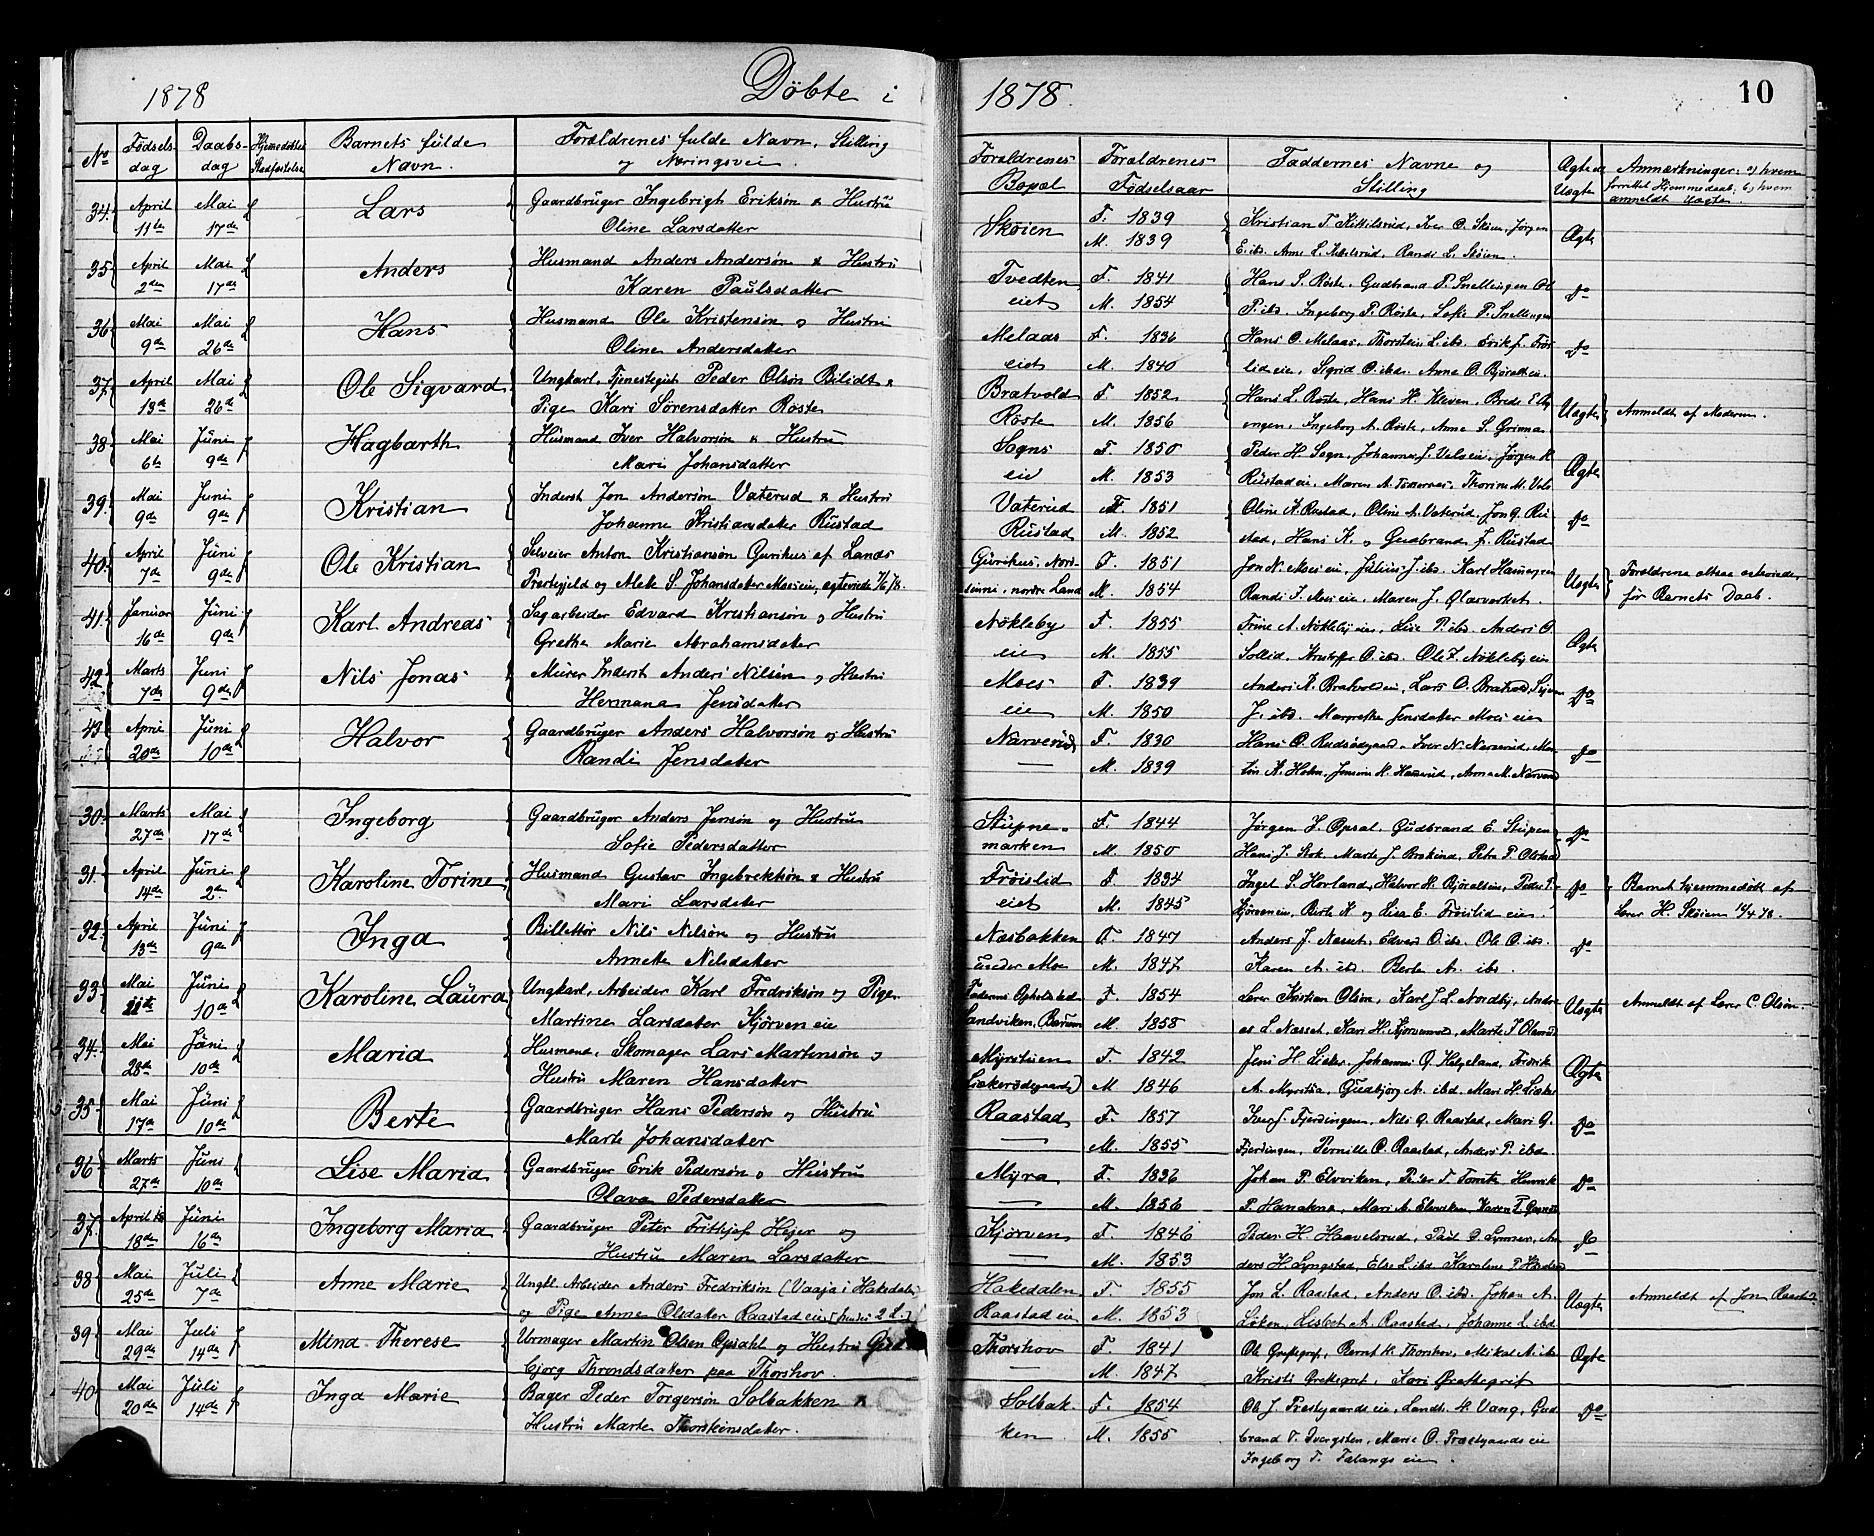 1878 Döbte i 1878. 10
No Fødselsdag Daabsdag Hjemmedøbtes Stadfæstelse Barnets fulde Navn. Forældrenes fulde Navn, Stilling og Næringsvei. Forældrenes Bopæl Forældrenes Fødselsaar Faddernes Navne og Stilling Ægte el. Uægte Anmærkninger
34. April Mai Lars Gaardbruger Ingebrigt Eriksøn & Hustru Skøien F. 1839 Kristian T. Kittilsrud, Iver O. Skøien, Jørgen Ægte
11te 17de Oline Larsdatter M. 1839 E. ibd. Anne L. Kittelsrud, Randi L. Skøien.
35 April Mai Anders Husmand Anders Andersøn & Hustru Tvedten F. 1841 Hans S. Røste, Gudbrand P. Snellingen Ol do
2den 17de Karen Paulsdatter eiet M. 1854 P. ibd. Ingeborg P. Røste, Sofie P. Snellingen
36 Mai Mai Hans Husmand Ole Kristensøn og Hustru Melaas F. 1836 Hans O. Melaas, Thorstein L. ibd. Erik J. Frøs do
9de 26de Oline Andersdatter eiet M. 1840 lid eie, Sigrid O. ibd. Anne O. Bjøralt eie.
37. April Mai Ole Sigvard Ungkarl, Tjenestegut Peder Olsøn Bilidt & Bratvold F. 1852 Hans L. Røste, Hans H. Kleven, Uægte Anmeldt af Moderen.
13de 26de Pige Kari Sørensdatter Røste Røste M. 1856 engen, Ingeborg A. Røste, Anne S.
38. Mai Juni Hagbarth Husmand Iver Halvorsøn & Hustru Sogns F. 1850 Peder H. Sogn, Johannes J. Vels eie, Jørgen K. Ægte
6te 9de Mari Johansdatter eie M. 1853 Rustad eie, Maren A. Thorine M. Vels
39. Mai Juni Kristian Inderst Jon Andersøn Vaterud & Hustru Vaterud F. 1851 Oline K. Rustad, Oline A. Vaterud, Jon G. Ru do
9de 9de Johanne Kristiansdatter Rustad Rustad M. 1852 stad, Hans K. og Gudbrand J. Rustad
40. April Juni Ole Kristian Selveier Anton Kristiansøn Gurikus af Lands Gurikus, Nord F. 1851 Jon N. Moes eie, Julius J. ibd. Karl Uægte Forældrene altsaa ægteviede
7de 9de Præstegjeld og Mathe S. Johansdatter Moes eie, ægteviede 7/6 78. sinni, nordre Land M. 1854 Randi J. Moes eie, Maren J. før Barnets Daab.
41. Januar Juni Karl Andreas Sagarbeider Edvard Kristiansøn og Hustru Nökleby F. 1855 Trine A. Nökleby eie, Lise P. ibd. Anders O. Ægte
16de 9de Grethe Marie Abrahamsdatter eie M. 1855 Sollid, Kristoffer O. ibd. Ole T. Nökleby eie
42. Marts Juni Nils Jonas Murer Inderst Anders Nilsøn og Hustru Moes F. 1839 Anders K. Bratvold eie, Lars O. Bratvold do
7de 9de Hermana Jensdatter eie M. 1850 J. ibd. Margrethe Jensdatter Moes eie
43. April Juni Halvor Gaardbruger Anders Halvorsøn og Hustru Narverud F. 1830 Hans O. Rudsødegaard, Iver N. Narverud, Mar do
20de 10de Randi Jensdatter — M. 1839 tin K. Holm, Anna M. Narverud
30. Marts Mai Ingeborg Gaardbruger Anders Jensøn og Hustru Stupne- F. 1844 Jørgen J. Opsal, Gudbrand E. Stupen do
27de 17de Sofie Pedersdatter marken M. 1850 Hans J. Stok, Marte J. Petra P.
31. April Juni Karoline Torine Husmand Gustav Ingebrektsøn & Hustru Frøislid F. 1834 Ingel S. Hovland, Halvor H. Bjøralteie, Peder P. do Barnet hjemmedøbt af
14de 2d. Mari Larsdatter eiet M. 1845 Kjørven eie, Berte K. og Lisa E. Frøislid eie. Lærer H. Skøien 14/4 78.
32. April Juni Inga Billettør Nils Nilsøn og Hustru Næsbakken F. 1847 Anders J. Næsset, Edvard O. ibd. Ole O. ibd. do
13de 9de Annette Nilsdatter under Moe M. 1847 Karen A. ibd. Berte A. ibd.
33. Mai Juni Karoline Laura Ungkarl, Arbeider Karl Fredriksøn og Pige Faderens Opholdsted F. 1854 Lærer Kristian Olsøn, Karl J. L. Nordby, Andre Uægte Anmeldt af Lærer C. Olsøn.
21de 10de Martine Larsdatter Kjørven eie Sandviken, Bærum M. 1858 as L. Næsset, Kari H. Kjørven, Marte J.
34. Mai Juni Maria Husmand, Skomager Lars Martensøn og Myrstuen F. 1842 Jens H. Lisker, Johannes G. Helgeland, Fredrik Ægte
28de 10de Hustru Maren Hansdatter (Liskersødegaarde) M. 1846 A. Myrstua, Gudbjørg A. ibd. Mari H. Lisker
35. Mai Juni Berte Gaardbruger Hans Pedersøn og Hustru Raastad F. 1857 Iver J. Fjerdingen, Nils G. Raastad, Mari G. do
17de 10de Marte Johansdatter — M. 1855 Fjerdingen, Pernille O. Raastad, Anders P. ibd.
36. Marts Juni Lise Maria Gaardbruger Erik Pedersøn og Hustru Myra F. 1836 Johan P. Elsviken, Peder T. Tomte, Henrik do
27de 10de Olava Pedersdatter — M. 1856 P. Hanakne, Mari A. Elsviken, Karen T.
37. April Juni Ingeborg Maria Gaardbruger Peter Frithjof Hejer og Kjørven F. 1846 Peder H. Haavelsrud, Paul O. Lynner, An do
18de 16de Hustru Maren Larsdatter — M. 1853 ders H. Lyngstad, Else L. ibd. Karoline P.
38 Mai Juli Anne Marie Ungkl. Arbeider Anders Fredriksøn (Vaaja i Hakedalen) Hakedalen F. 1855 Jon L. Raastad, Anders O. ibd. Johan A. Uægte Anmeldt af Jon Raastad
25de 7de og Pige Anne Olsdatter Raastad eie Raastad eie M. 1853 Løken, Lisbet A. Raastad, Johanne L. ibd.
39 Mai Juli Mina Therese Urmager Martin Olsen Opdahl og Hustru Gud Thorshov F. 1841 Ole Grættegret, Bernt K. Thorshov, Mikal N. ibd. Ægte
29de 14de bjørg Throndsdatter paa Thorshov. — M. 1847 Kristi Grættegret, Kari Grættegret
40 Mai Juli Inga Marie Bager Peder Torgersøn Solbakken & Solbak F. 1854 Ole J. Præstgaards eie, Landh. H. Vang, Gud do
20de 14de Hustru Marte Thorstensdatter. ken M. 1855 brand T. Tvergsten, Marie O. Præstgaards eie
Ingeborg T. Falangs eie.